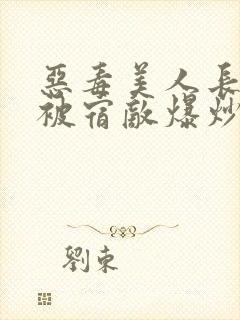 惡毒美人長
被宿敵爆炒
劉東